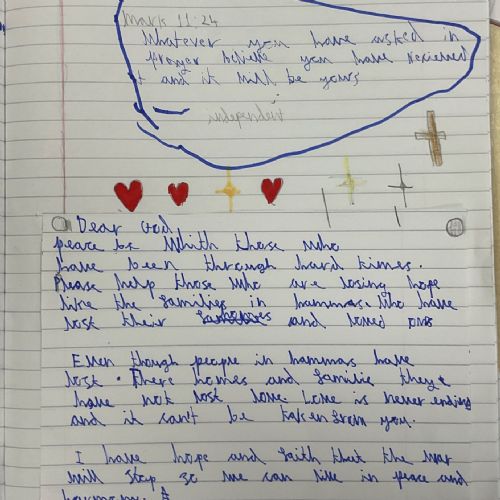 Mark 11:24
Whatever you have asked in
prayer believe you have recieved
it and it will be yours
independent
Dear God
peace be Whith those who
have been through hard times.
Please help those who are losing hope
like the families in hammas. Who have
lost their homes and loved ons
Even though people in hammas have
lost. There homes and familie they
have not lost love. Love is never ending
and it can't be taken from you.
I have hope and faith that the war
will stop so we can live in peace and
harmony.